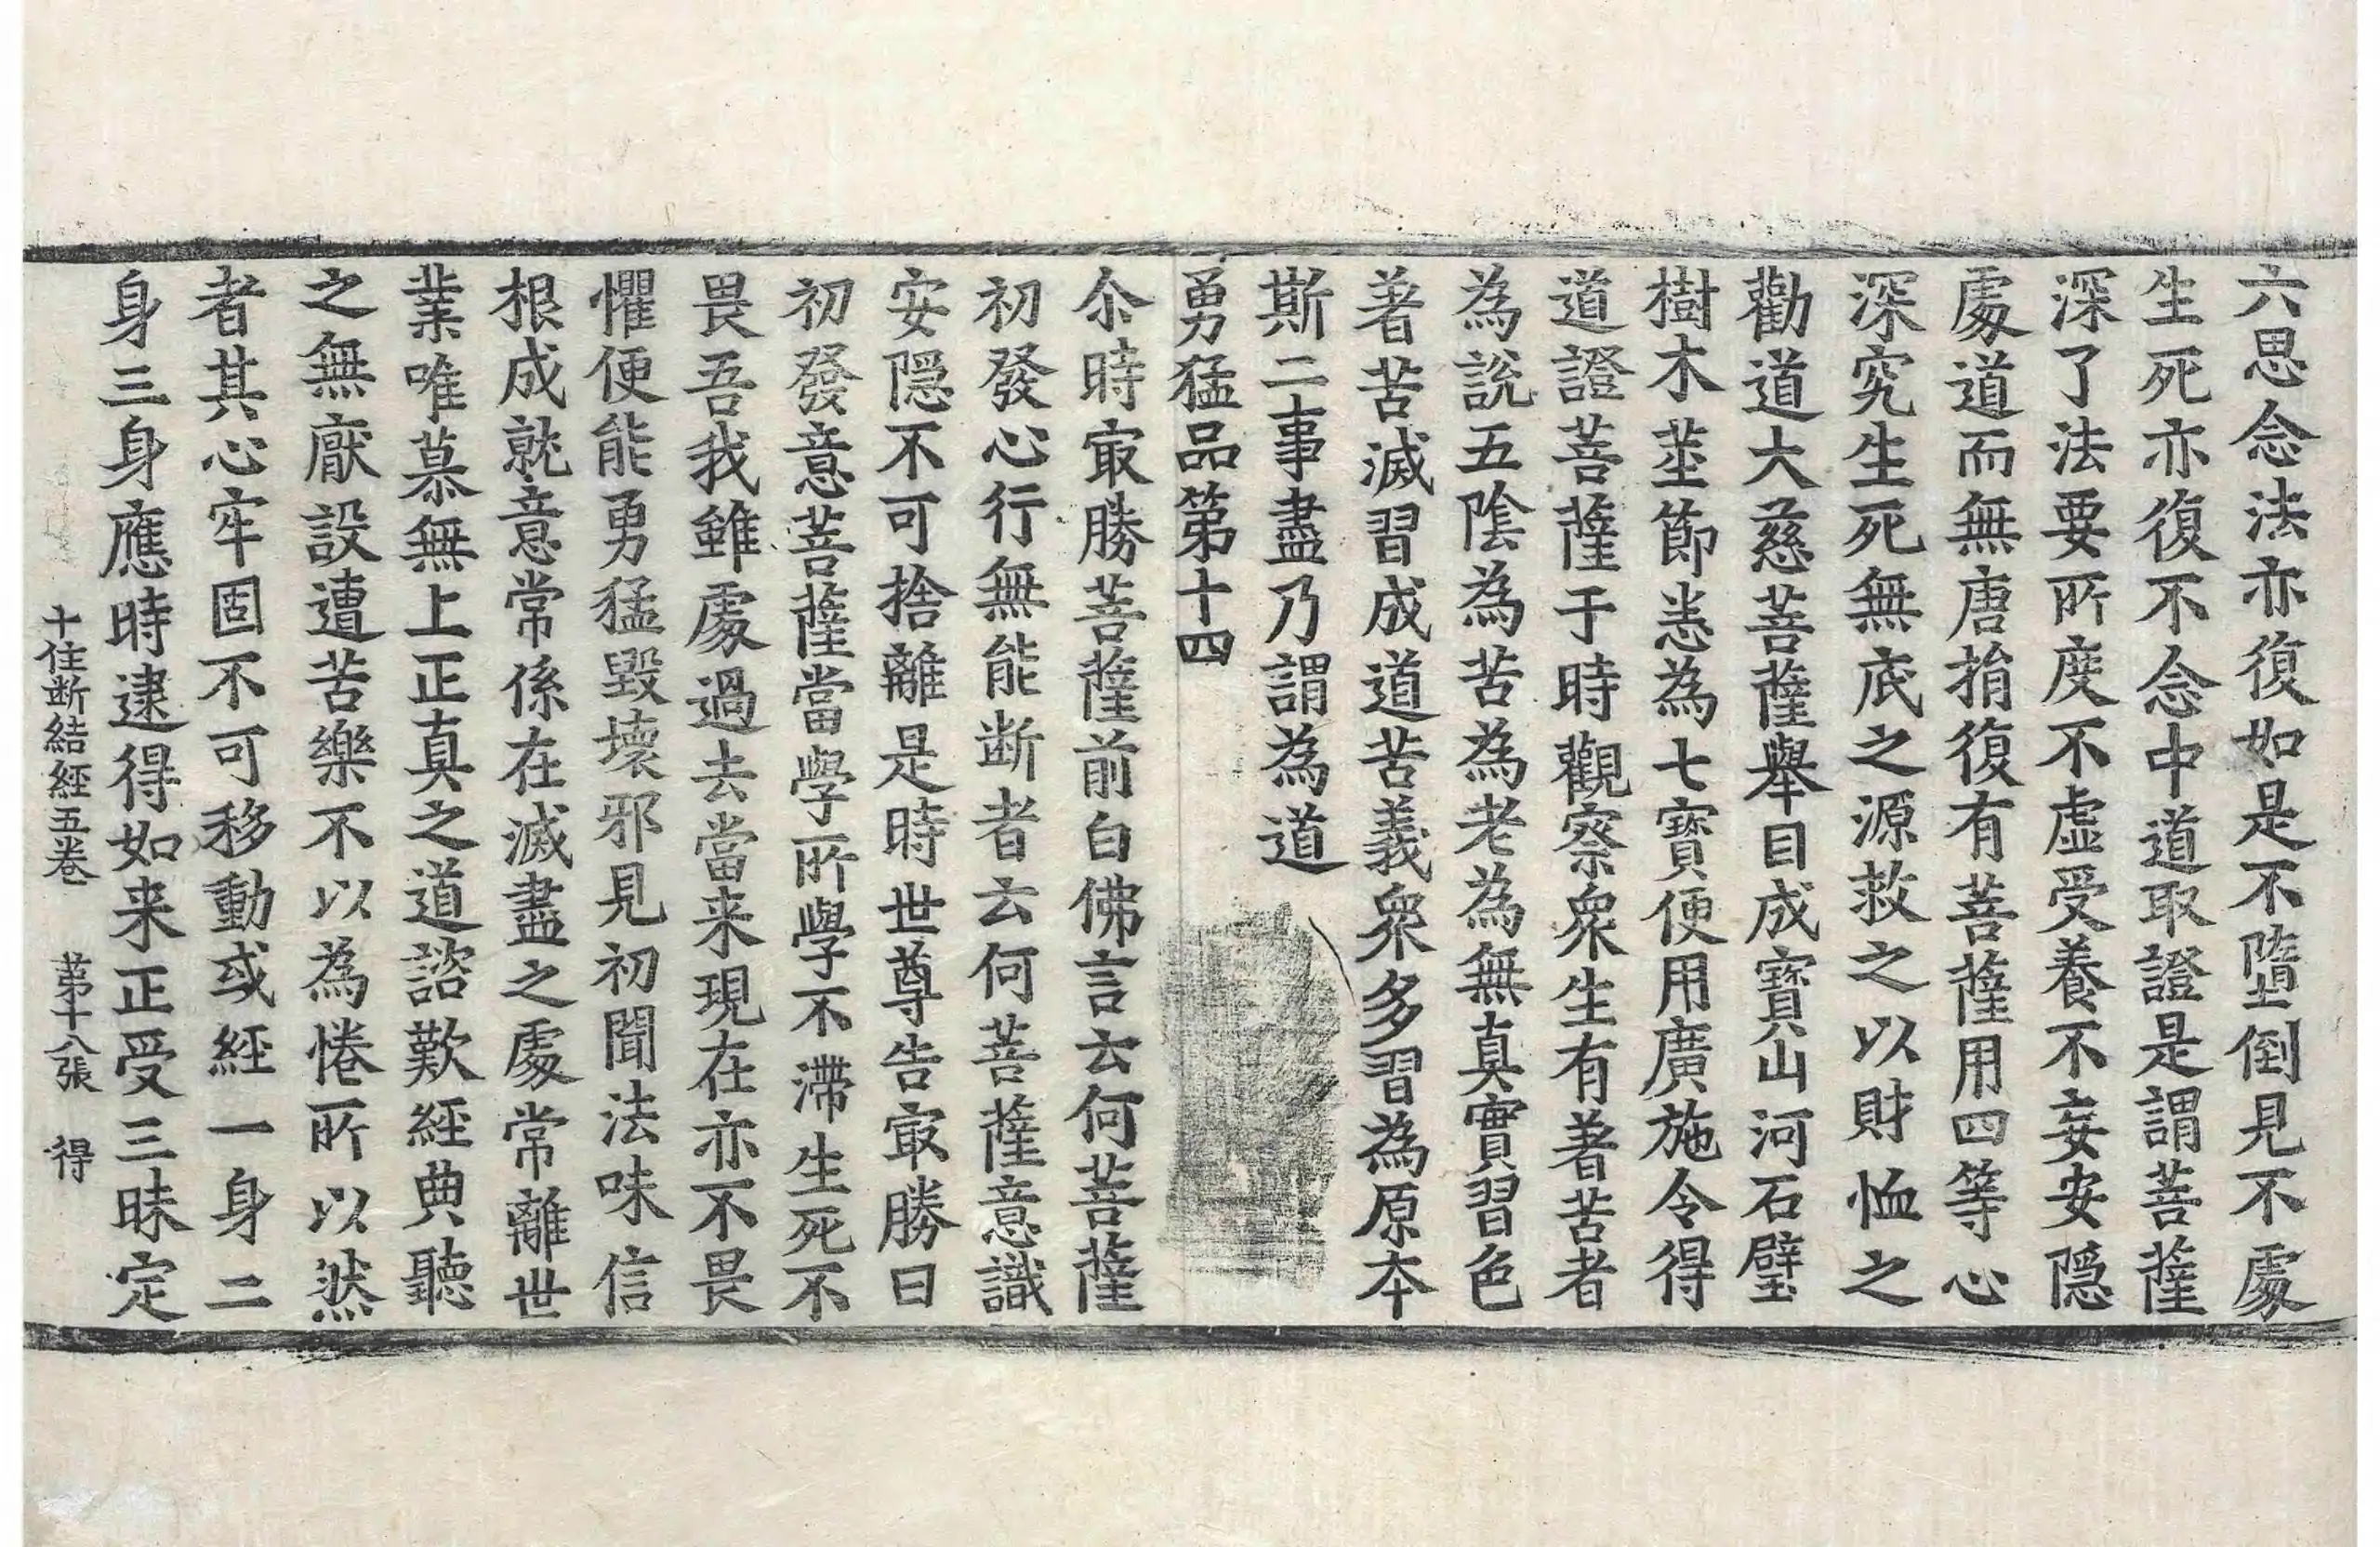 六思念法亦復如是不墮倒見不處
生死亦復不念中道取證是謂菩薩
深了法要所度不虛受養不妄安隱
處道而無唐捐復有菩薩用四等心
深究生死無底之源救之以財恤之
勸道大慈菩薩舉目成寶山河石壁
樹木莖節悉為七寶便用廣施令得
道證菩薩于時觀察衆生有著苦者
為說五陰為苦為老為無真實習色
著苦滅習成道苦義衆多習為原本
斯二事盡乃謂為道
勇猛品第十四
尒時㝡勝菩薩前白佛言云何菩薩
初發心行無能断者云何菩薩意識
安隱不可捨離是時世尊告㝡勝曰
初發意菩薩當學所學不滯生死不
畏吾我雖處過去當来現在亦不畏
懼便能勇猛毀壞邪見初聞法味信
根成就意常係在滅盡之處常離世
業唯慕無上正真之道諮歎經典聽
之無厭設遭苦樂不以為惓所以然
者其心牢固不可移動或經一身二
身三身應時逮得如来正受三昧定
十住断結經五卷 苐十八張 得